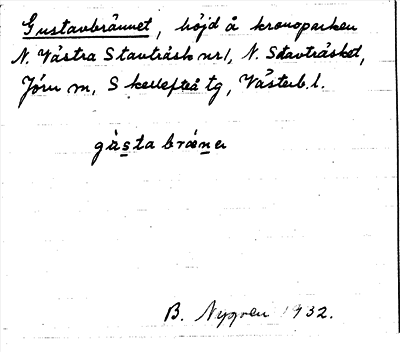 Gustavbrännet, höjd å kronoparken
N. Västra Stavträsk nr1, N. Stavträsket,
Jörn sn, Skellefteå tg, Västerb. l.
gàsta brænɘ
B. Nygren 1932.